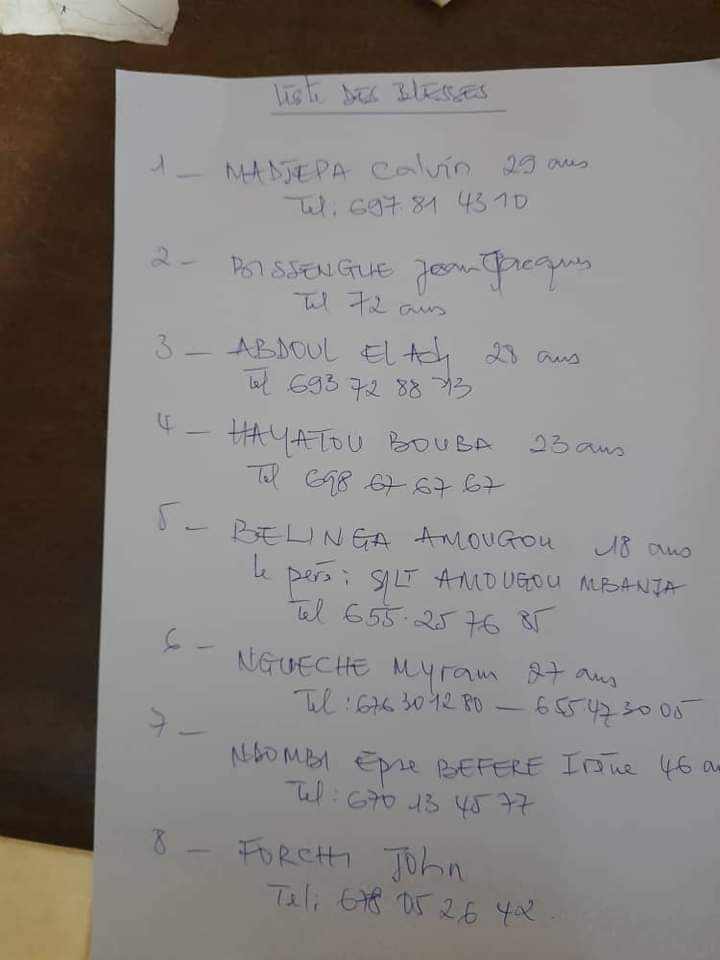 Liste DES BLESSES
1 - MADJEPA Calvin 29 ans
Tel. 697.81 43 10
2 - BISSENGUE Jean Jacques
Tel 72 ans
3 - ABDOUL El Adj 28 ans
Tel 693 72 88 13
4 - HAYATOU BOUBA 23 ans
Tel 698 67 67 67
5 - BELINGA AMOUGOU 18 ans
le père: AMOUGOU MBANJA
Tel 655.25 76 85
6 - NGUECHE Myram 27 ans
Tel : 676301280 - 655473005
7 - NDOMBI Epse BEFERE Irène 46 an
Tel: 670 13 45 77
8 - FORCHI John
Tel: 678 05 26 42